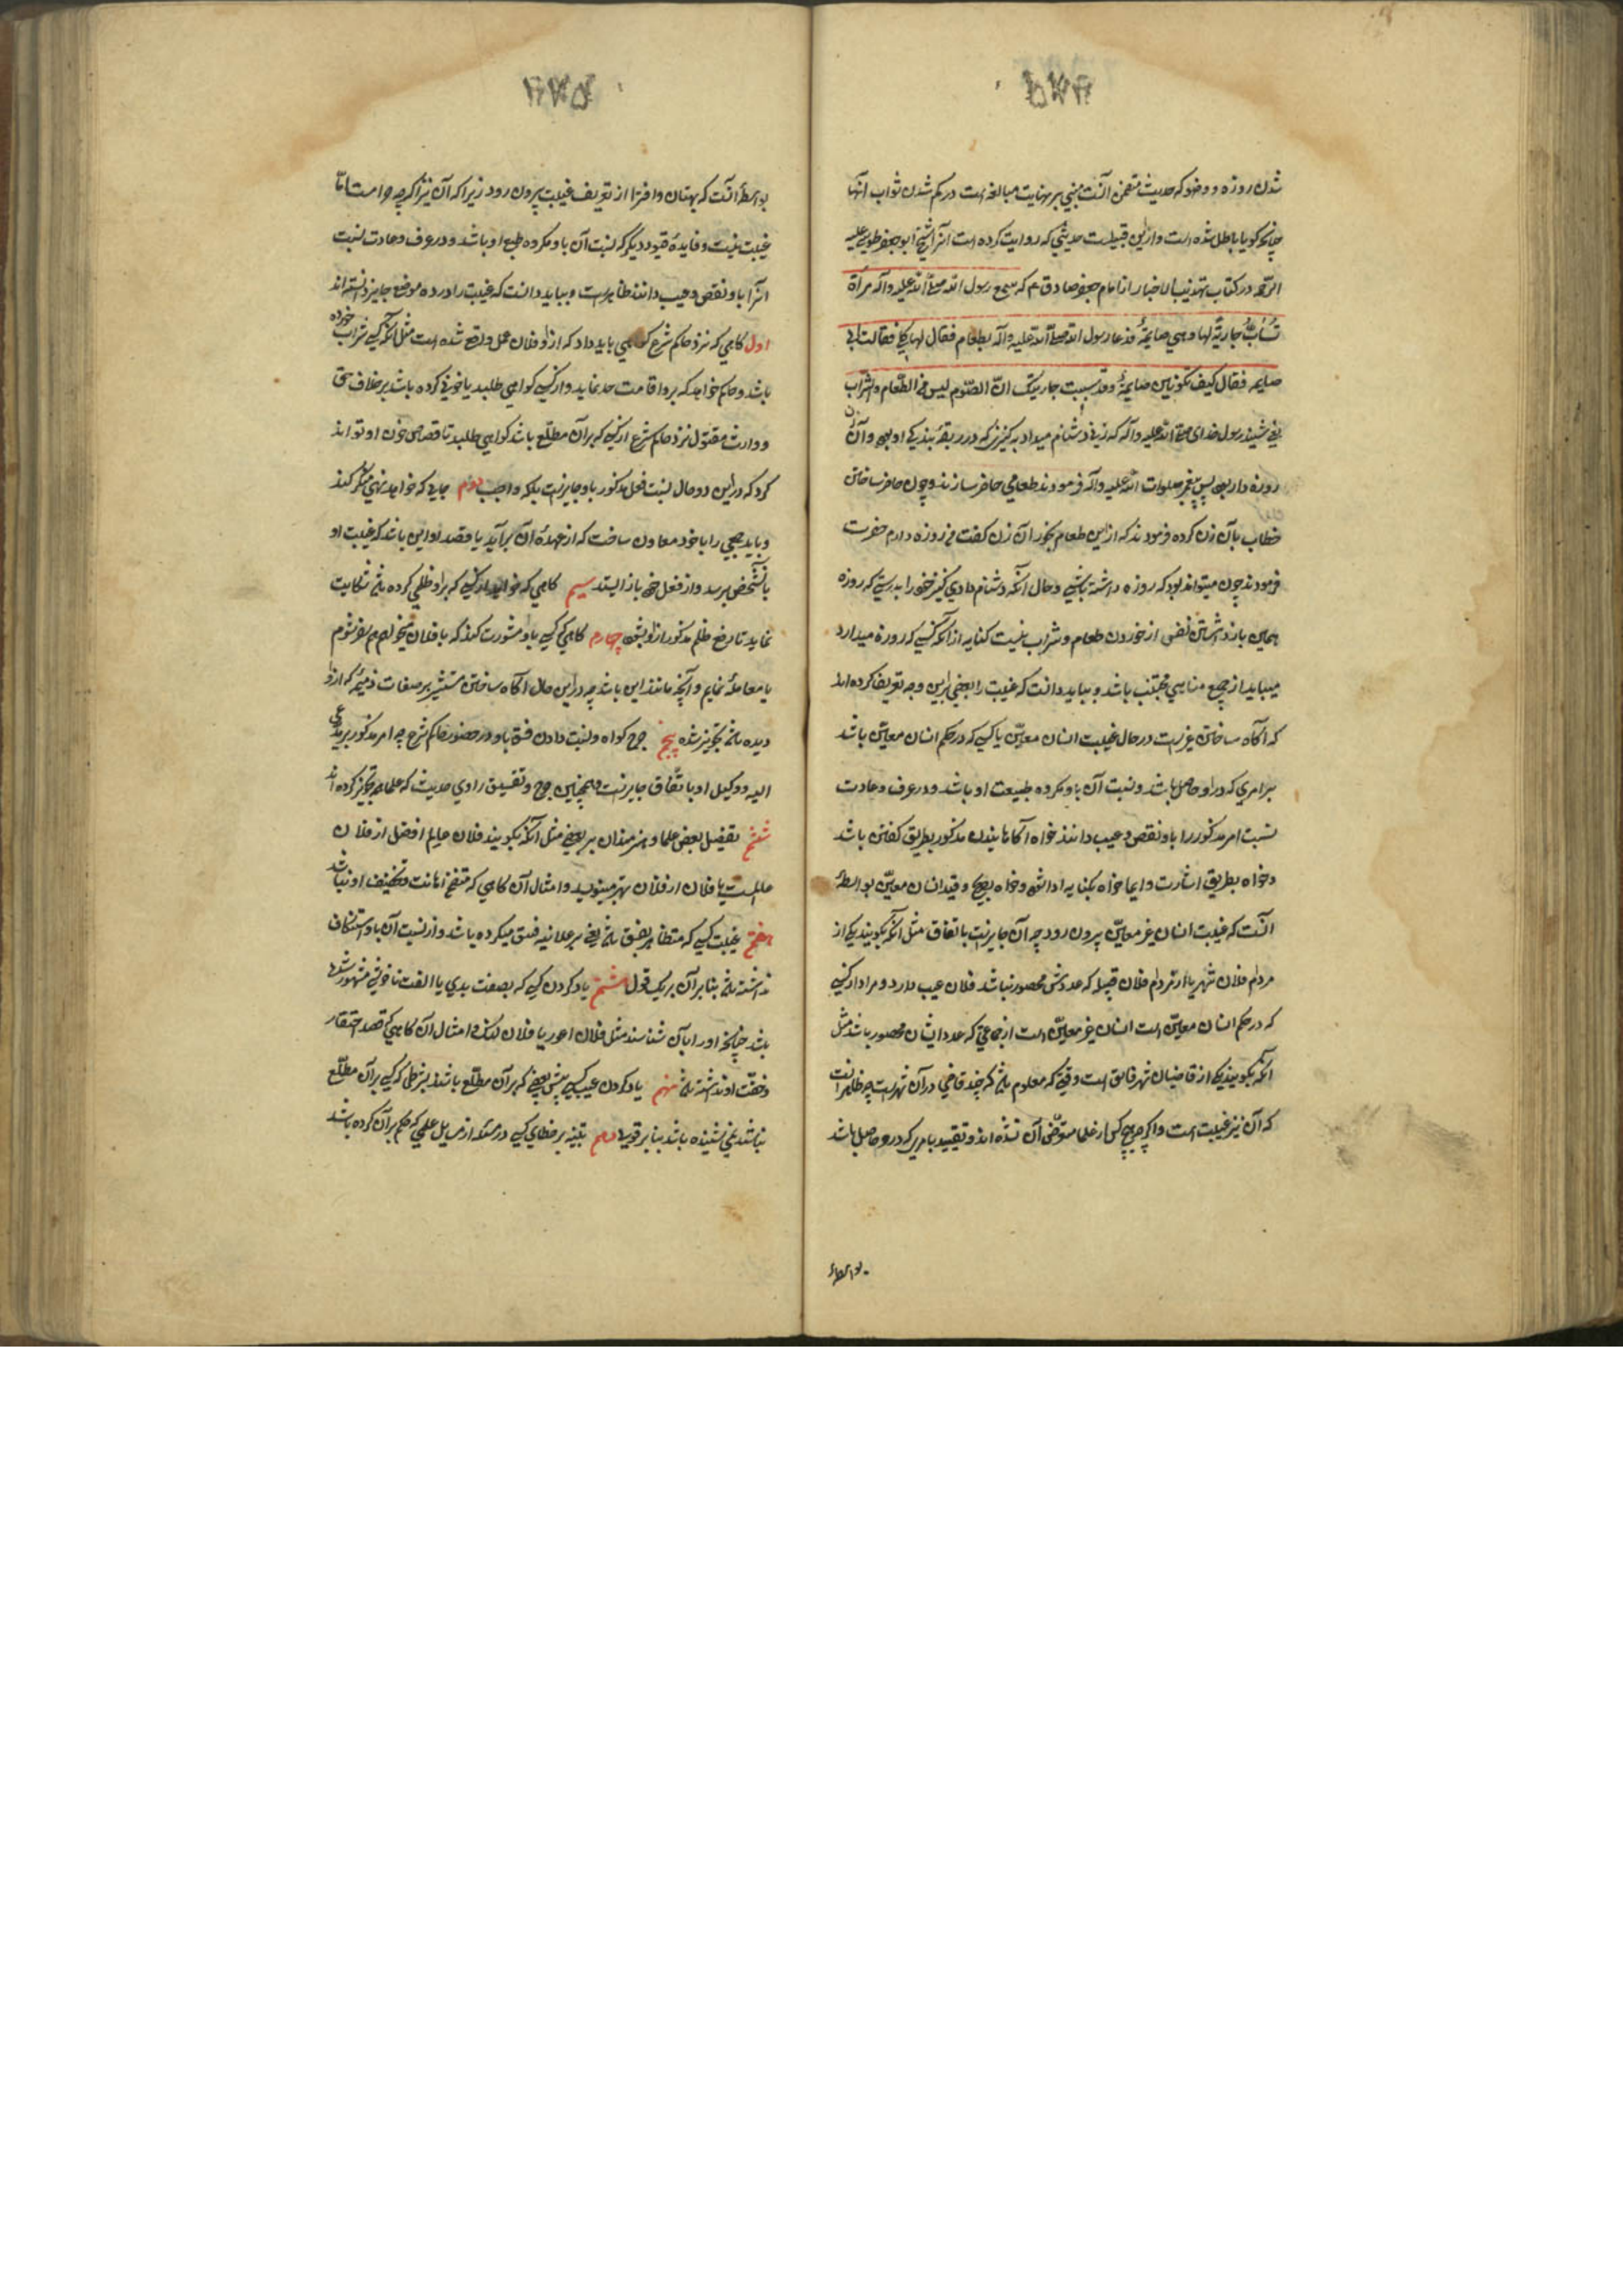 شدن روزه و وضو که حدیث متضمن آنست مبنی بر نهایت مبالغه است در کم شدن ثواب آنها
چنانچه کویا باطل شده است و ازین قبیلست حدیثی که روایت کرده است آنرا شیخ ابو جعفر طوسی علیه
الرحمه در کتاب تهذیب الاخبار از امام جعفر صادق ع م که سمع رسول الله صلی الله علیه و آله امرأة
تُسابّ جاریةً لها و هی صایمةٌ فدعا رسول الله صلی الله علیه و آله بطعام فقال لها کلی فقالت انی
صایمه فقال کیف تکونین صایمةً و قد سببت جاریتک انّ الصّوم لیس من الطّعام و الشّراب
یعنی شنید رسول خدای صلی الله علیه و آله که زنی دشنام میداد به کنیزی که در ربقهٔ بندکی او بود و آن زن
روزه دار بود پس پیغمبر صلوات الله علیه و آله فرمودند طعامی حاضر سازند و چون حاضر ساختن
خطاب بآن زن کرده فرمودند که ازین طعام بخور آن زن کفت من روزه دارم حضرت
فرمودند چون میتواند بود که روزه داشته باشی و حال آنکه دشنام دادی کنیز خود را بدرستی که روزه
همین باز داشتن نفس از خوردن طعام و شراب نیست کنایه از آنکه کسی که روزه میدارد
میباید از جمیع مناهی مجتنب باشد و بباید دانست که غیبت را بعضی براین وجه تعریف کرده اند
که آکاه ساختن غیرست در حال غیبت انسان معیّن یا کسی که در حکم انسان معیّن باشد
بر امری که در او حاصل باشد و نسبت آن باو مکروه طبیعت او باشد و در عرف و عادت
نسبت امر مذکور را باو نقص و عیب دانند خواه آکاهانیدن مذکور بطریق کفتن باشد
و خواه بطریق اشارت و ایما خواه بکنایه ادا شود و خواه بصریح و قید انسان معیّن بواسطهٔ
آنست که غیبت انسان غیر معیّن بیرون رود چه آن جایزست باتفاق مثل آنکه بکویند یکی از
مردم فلان شهر یا از مردم فلان قبیله که عددش محصور نباشد فلان عیب دارد و مراد از کسی
که در حکم انسان معیّن است انسان غیر معیّن است از جماعتی که عدد ایشان محصور باشد مثل
آنکه بکویند یکی از قاضیان شهر فاسق است وقتی که معلوم باشد که چند قاضی در آن شهرست چه ظاهر آنست
که آن نیز غیبت است و اکرچه هیچ کس از علما متعرّض آن نشده اند و تقیید بامری که در و حاصل باشد
بواسطهٔ
بواسطهٔ آنست که بهتان و افترا از تعریف غیبت بیرون رود زیرا که آن نیز اکرچه حرامست امّا
غیبت نیست و فایدهٔ قیود دیکر که نسبت آن باو مکروه طبع او باشد و در عرف و عادت نسبت
آنرا باو نقص و عیب دانند ظاهرست و بباید دانست که غیبت را در ده موضع جایز دانسته اند
اول کاهی که نزد حاکم شرع کواهی باید داد که از و فلان عمل واقع شده است مثل آنکه کسی شراب خورده
باشد و حاکم خواهد که برو اقامت حد نماید و از کسی کواهی طلبد یا خونی کرده باشد بر خلاف حق
و وارث مقتول نزد حاکم شرع از کسی که بر آن مطلّع باشد کواهی طلبد تا قصاص خون او تواند
کرد که در این دو حال نسبت فعل مذکور باو جایزست بلکه واجب دوم جایی که خواهد نهی منکر کند
و باید جمعی را با خود معاون ساخت که از عهدهٔ آن برآید یا قصد او این باشد که غیبت او
بآن شخص برسد و از فعل خود باز ایستد سیم کاهی که خواهد از کسی که بر او ظلمی کرده باشد شکایت
نماید تا رفع ظلم مذکور از او بشود چهارم کاهی که کسی باو مشورت کند که با فلان میخواهم همسفر شوم
یا معامله نمایم و آنچه مانند این باشد چه در این حال آکاه ساختن مستشیر بر صفات ذمیمه که از او
دیده باشد تجویز شده پنجم جرح کواه و نسبت دادن فسق باو در حضور حاکم شرع چه امر مذکور بر مدّعی
الیه و وکیل او باتّفاق جایزست و همچنین جرح و تفسیق راوی حدیث که علما هم تجویز کرده اند
ششم تفضیل بعض علما و هنرمندان بر بعضی مثل آنکه بکویند فلان عالم افضل از فلان
عالمست یا فلان از فلان بهتر مینویسد و امثال آن کاهی که متضمن اهانت و تخفیف او نباشد
هفتم غیبت کسی که متظاهر بفسق باشد یعنی بر علانیه فسق میکرده باشد و از نسبت آن باو استنکاف
نداشته باشد بنابر آن بر یک قول هشتم یاد کردن کسی که بصفت بدی یا الفت ناخوشی مشهور شده
باشد چنانچه او را بآن شناسند مثل فلان اعور یا فلان لنک و امثال آن کاهی که قصد احتقار
و خفّت او نداشته باشد نهم یاد کردن عیب کسی پیش بعضی که بر آن مطلّع باشند بشرطی که کسی بر آن مطلّع
نباشد یعنی نشنیده باشد بنابر قولی دهم تنبیه بر خطای کسی در مسئله از مسایل علمی که حکم بر آن کرده باشد